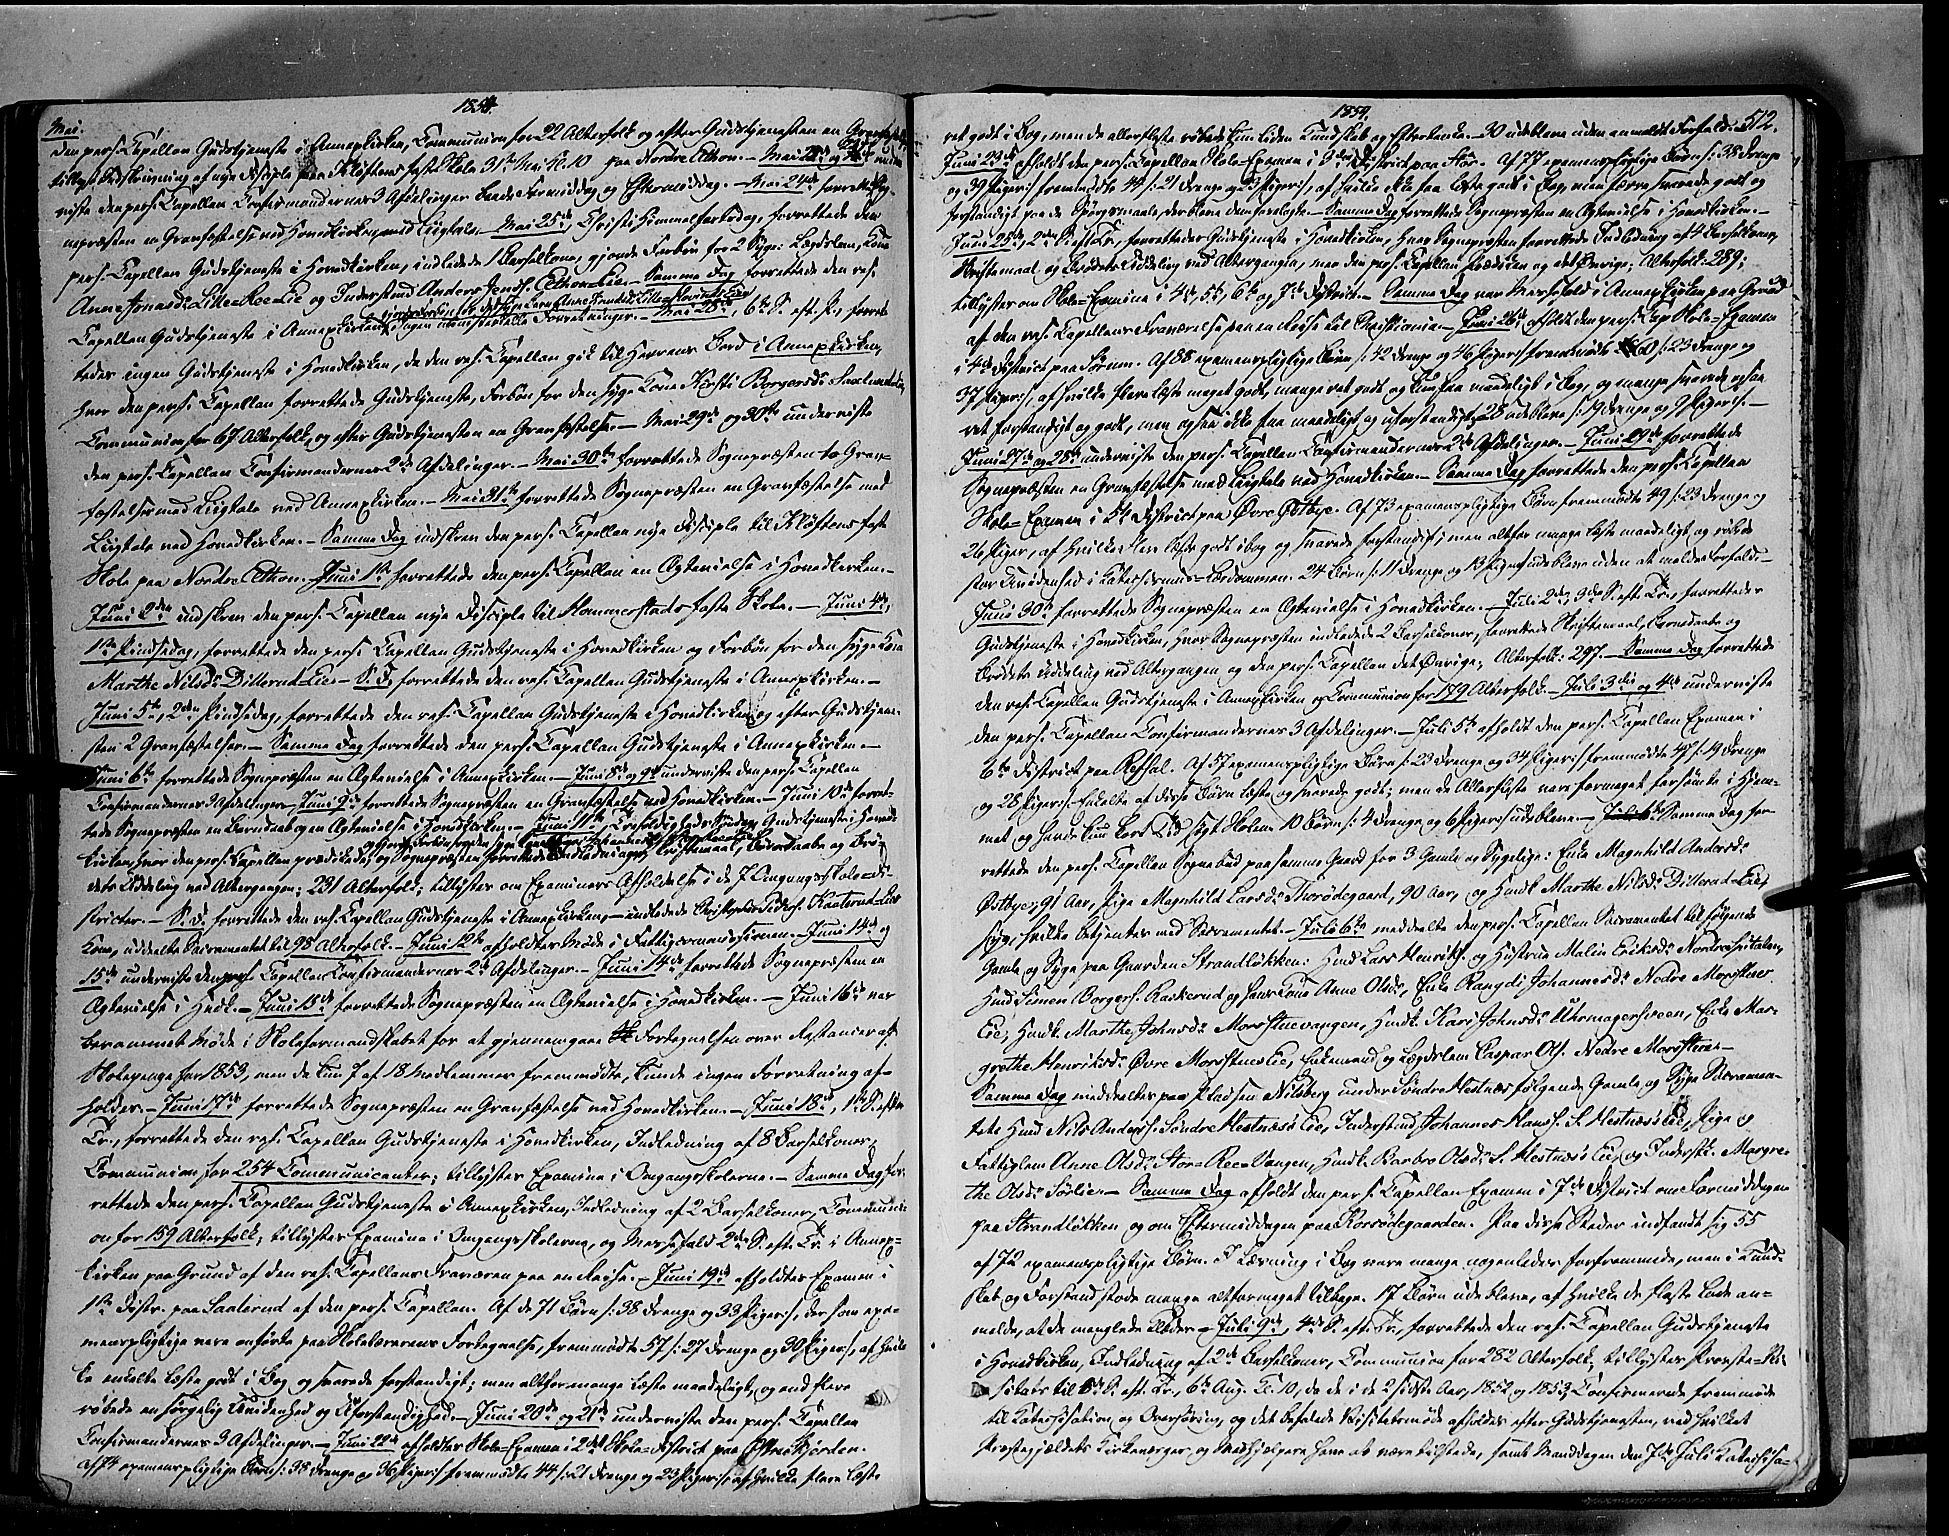 1854.
Mai.
den pers. Capellan Gudstjeneste i Annexkirken, Communion for 22 Alterfolk og efter Gudstjenesten en Gravfæstelse,
tillyst Indskrivning af nye Disciple paa Kløftens faste Skole 31te Mai Kl. 10 paa Nordre Ethon. – Mai
viste den pers. Capellan Confirmandernes 3 Afdelinger baade Formiddag og Eftermiddag. – Mai 24de forrettede Sog-
nepræsten en Gravfæstelse ved Hovedkirken med Liigtale. – Mai 25de, Christi Himmelfartsdag, forrettede den
pers. Capellan Gudstjeneste i Hovedkirken, indledede 1 Barselkone, gjorde Forbøn for 2 Syge: Lægdslem, Kone
Anne Jonasdr. Lille-Ree-Eie og Inderstmd Anders Jensen Ethon-Eie. – Samme Dag forrettede den res.
Capellan Gudstjeneste i Annexkirken, ingen ministerielle Forretninger. – Mai 28de, 6te S. eft. P., forret-
tedes ingen Gudstjeneste i Hovedkirken, da den res. Capellan gik til Herrens Bord i Annexkirken,
hvor den pers. Capellan forrettede Gudstjeneste, Forbøn for den syge Kone Kersti Borgersdr.
Communion for 67 Alterfolk, og efter Gudstjenesten en Gravfæstelse. – Mai 29de og 30te underviste
den pers. Capellan Confirmandernes 2de Afdelinger. – Mai 30te forrettede Sognepræsten to Grav-
fæstelser med Liigtale ved Annexkirken. – Mai 31te forrettede Sognepræsten en Gravfæstelse med
Liigtale ved Hovedkirken. – Samme Dag indskrev den pers. Capellan nye Disciple til Kløftens faste
Skole paa Nordre Ethon. Juni 1ste forrettede den pers. Capellan en Ægtevielse i Hovedkirken. –
Juni 2den indskrev den pers. Capellan nye Disciple til Hammerstads faste Skole. – Juni 4de,
1ste Pindsedag, forrettede den pers. Capellan Gudstjeneste i Hovedkirken og Forbøn for den syge Kone
Marthe Nilsdr. Dillerud-Eie. – S. D. forrettede den res. Capellan Gudstjeneste i Annexkirken. –
Juni 5te, 2den Pindsedag, forrettede den res. Capellan Gudstjeneste i Hovedkirken, og efter Gudstjene-
sten 2 Gravfæstelser. – Samme Dag forrettede den pers. Capellan Gudstjeneste i Annexkirken. –
Juni 6te forrettede Sognepræsten en Ægtevielse i Annexkirken. – Juni 8de og 9de underviste den pers. Capellan
Confirmandernes 3 Afdelinger. – Juni 9de forrettede Sognepræsten en Gravfæstelse ved Hovedkirken. – Juni 10de forret-
tede Sognepræsten en Barnedaab og en Ægtevielse i Hovedkirken. – Juni 11te, Trefoldigheds Søndag, Gudstjeneste i Hoved-
kirken, hvor den pers. Capellan prædikede, og Sognepræsten forrettede Indledninger, Skriftemaal, Barnedaabe og Brø-
dets Uddeling ved Altergangen; 231 Alterfolk; tillystes om Examiners Afholdelse i de 7 Omgangsskole-Di-
stricter. – S. D. forrettede den res. Capellan Gudstjeneste i Annexkirken, – indledede
Kone, uddelte Sacramentet til 95 Alterfolk. – Juni 12te afholdtes Møde i Fattigcommissionen. – Juni 14de og
15de underviste den pers. Capellan Confirmandernes 2de Afdelinger. – Juni 14de forrettede Sognepræsten en
Ægtevielse i Hvdk. – Juni 15de forrettede Sognepræsten en Ægtevielse i Hovedkirken. – Juni 16de var
berammet Møde i Skoleformandskabet for at gjennemgaae Fortegnelsen over Restancer af
Skolepenge for 1853, men da kun 7 af 18 Medlemmer fremmødte, kunde ingen Forretning af-
holdes. – Juni 17de forrettede Sognepræsten en Gravfæstelse ved Hovedkirken. – Juni 18de, 1ste S. efter
Tr., forrettede den res. Capellan Gudstjeneste i Hovedkirken, Indledning af 8 Barselkoner,
Communion for 254 Communicanter; tillystes Examina i Omgangsskolerne. – Samme Dag for-
rettede den pers. Capellan Gudstjeneste i Annexkirken, Indledning af 2 Barselkoner, Communi-
on for 159 Alterfolk; tillystes Examina i Omgangsskolerne, og Messefald 2den S. eft. Tr. i Annex-
kirken paa Grund af den res. Capellans Fraværen paa en Reise. – Juni 19de afholdtes Examen i
1ste Distr. paa Saaterud af den pers. Capellan. Af de 71 Børn /: 38 Drenge og 33 Piger :/, der som exa-
menspligtige vare anførte paa Skolelærerens Fortegnelse, fremmødte 57 /: 27 Drenge og 30 Piger :/, af hvil-
ke enkelte læste godt i Bog og svarede forstandigt; men altfor mange læste maadeligt, og end flere
røbede en sørgelig Uvidenhed og Uforstandighed. – Juni 20de og 21de underviste den pers. Capellan
Confirmandernes 3 Afdelinger. – Juni 22de afholdtes Skole-Examen i 2det Skole-District paa
Af 74 examenspligtige Børn /: 38 Drenge og 36 Piger :/ fremmødte 44 /: 21 Drenge og 23 Piger :/, af hvilke flere læste
1854. 512.
ret godt i Bog, men de allerfleste røbede kun liden Kundskab og Eftertanke. – 30 udebleve uden anmeldt Forfald. –
Juni 23de afholdt den pers. Capellan Skole-Examen i 3die District paa Hør. Af 77 examenspligtige Børn /: 38 Drenge
og 39 Piger :/ fremmødte 44 /: 21 Drenge og 23 Piger :/, af hvilke ikke faa læste godt i Bog, men færre svarede godt og
forstandigt paa de Spørgsmaale, der bleve dem forelagte. – Samme Dag forrettede Sognepræsten en Ægtevielse i Hovedkirken. –
Juni 25de, 2den S. eft. Tr., forrettedes Gudstjeneste i Hovedkirken, hvor Sognepræsten forrettede Indledning af 4 Barselkoner,
Skriftemaal og Brødets Uddeling ved Altergangen, men den pers. Capellan Prædiken og det Øvrige; Alterfolk: 289;
tillystes om Skole-Examina i 4de, 5te, 6te og 7de District. – Samme Dag var Messefald i Annexkirken paa Grund
af den res. Capellans Fraværelse paa en Reise til Christiania. – Juni 26de afholdt den pers. Cap. Skole-Examen
i 4de District paa Sørum. Af 88 examenspligtige Børn /: 42 Drenge og 46 Piger :/ fremmødte 60 /: 23 Drenge og
37 Piger :/, af hvilke flere læste meget godt, mange ret godt og kun faa maadeligt i Bog, og mange svarede ogsaa
ret forstandigt og godt, men ogsaa ikke faa maadeligt og uforstandigt; 28 udebleve /: 19 Drenge og 9 Piger :/. –
Juni 27de og 28de underviste den pers. Capellan Confirmandernes 2de Afdelinger. – Juni 29de forrettede
Sognepræsten en Gravfæstelse med Liigtale ved Hovedkirken. – Samme Dag forrettede den pers. Capellan
Skole-Examen i 5te District paa Øvre Østbye. Af 73 examenspligtige Børn fremmødte 49 /: 23 Drenge og
26 Piger, af hvilke flere læste godt i Bog og svarede forstandigt; men altfor mange læste maadeligt og røbede
stor Uvidenhed i Catechismus-Lærdommen. 24 Børn /: 11 Drenge og 13 Piger :/ udebleve uden at melde Forfald. –
Juni 30te forrettede Sognepræsten en Ægtevielse i Hovedkirken. – Juli 2den, 3die S. eft. Tr., forrettedes
Gudstjeneste i Hovedkirken, hvor Sognepræsten indledede 2 Barselkoner, forrettede Skriftemaal, Barnedaab og
Brødets Uddeling ved Altergangen og den pers. Capellan det Øvrige; Alterfolk: 297. – Samme Dag forrettede
den res. Capellan Gudstjeneste i Annexkirken og Communion for 179 Alterfolk. – Juli 3die og 4de underviste
den pers. Capellan Confirmandernes 3 Afdelinger. – Juli 5te afholdt den pers. Capellan Examen i
6te District paa Refsal. Af 57 examenspligtige Børn /: 23 Drenge og 34 Piger :/ fremmødte 47 /: 19 Drenge
og 28 Piger :/. Enkelte af disse Børn læste og svarede godt; men de Allerfleste vare formeget forsømte i Hjem-
met og havde kun kort Tid søgt Skolen. 10 Børn /: 4 Drenge og 6 Piger :/ udebleve. – Samme Dag for-
rettede den pers. Capellan Sognebud paa samme Gaard for 3 Gamle og Sygelige: Enke Magnhild Andersdr.
Østbye, 91 Aar, Pige Magnhild Larsdr. Thorødegaard, 90 Aar, og Husk. Marthe Nilsdr. Dillerud-Eie,
syg, hvilke betjentes med Sacramentet. – Juli 6te meddeelte den pers. Capellan Sacramentet til følgende
Gamle og Syge paa Gaarden Strandløkken: Husmd Lars Henriks. og Hustrue Malin Eriksdr. Nordrehvitalen,
Husmd Simen Borgers. Raskerud og hans Kone Anne Olsdr., Enke Rangdi Johannesdr. Nedre Morstue-
Eie, Husk. Marthe Johnsdr. Morstuevangen, Husk. Kari Johnsdr. Uhrmagersveen, Enke Mar-
grethe Henriksdr. Øvre Morstue-Eie, Enkemand og Lægdslem Caspar Ols. Nedre Morstue. –
Samme Dag meddeeltes paa Pladsen Nilsberg under Søndre Hestnæs følgende Gamle og Syge Sacramen-
tet: Husmd Nils Anders. Søndre Hestnæs Eie, Inderstmd Johannes Hans. S. Hestnæs Eie, Pige og
Fattiglem Anne Olsdr. Stor-Ree-Vangen, Husk. Barbro Olsdr. S. Hestnæs Eie, og Inderstk. Margre-
the Olsdr. Sørlie. – Samme Dag afholdt den pers. Capellan Examen i 7de District om Formiddagen
paa Strandløkken og om Eftermiddagen paa Korsødegaarden. Paa disse Steder indfandt sig 55
af 72 examenspligtige Børn. I Læsning i Bog vare mange nogenledes forfremmede, men i Kund-
skab og Forstand stode mange altformeget tilbage. 17 Børn udebleve, af hvilke de fleste lode an-
melde, at de manglede Klæder. – Juli 9de, 4de S. eft. Tr., forrettede den res. Capellan Gudstjeneste
i Hovedkirken, Indledning af 2de Barselkoner, Communion for 282 Alterfolk, tillystes Provste-Vi-
sitats til 8de S. eft. Tr., 6te Aug. Kl. 10, da de i de 2 sidste Aar, 1852 og 1853, Confirmerede fremmøde
til Catechisation og Overhøring, og det befalede Visitatsmøde afholdes efter Gudstjenesten, ved hvilket
Præstegjældets Kirkeverger, og Medhjelpere have at være tilstede, samt Mandagen den 7de Juli Catechisa-